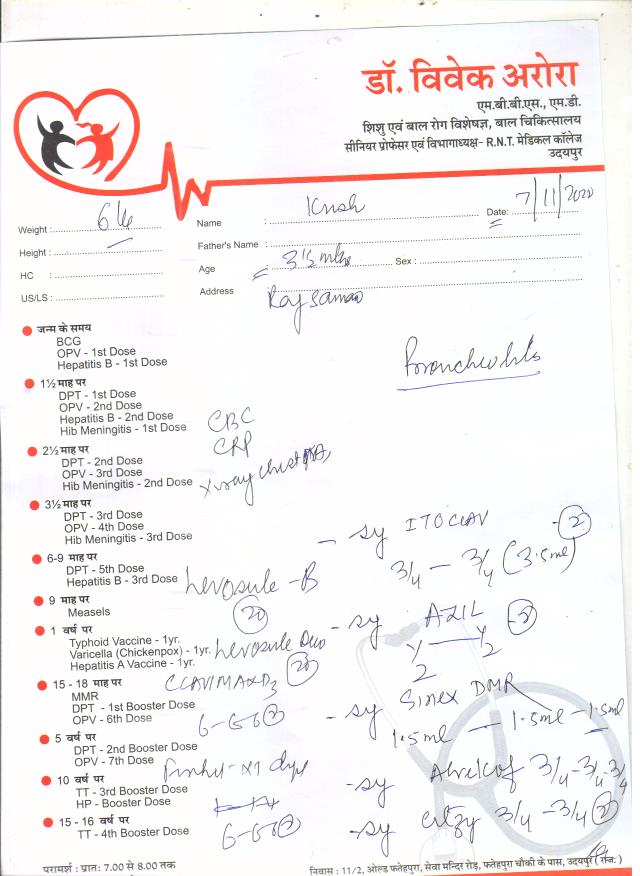 डॉ. विवेक अरोरा
एम.बी.बी.एस., एम.डी.
शिशु एवं बाल रोग विशेषज्ञ, बाल चिकित्सालय
सीनियर प्रोफेसर एवं विभागाध्यक्ष- R.N.T. मेडिकल कॉलेज
उदयपुर
Weight :
Name : Krish
Date: 7/11/2020
Height :
Father's Name :
HC :
Age : 3½ mths
Sex :
US/LS :
Address
जन्म के समय
BCG
OPV - 1st Dose
Hepatitis B - 1st Dose
1½ माह पर
DPT - 1st Dose
OPV - 2nd Dose
Hepatitis B - 2nd Dose
Hib Meningitis - 1st Dose
CBC
CRP
2½ माह पर
DPT - 2nd Dose
OPV - 3rd Dose
Hib Meningitis - 2nd Dose
X-ray chest
3½ माह पर
DPT - 3rd Dose
OPV - 4th Dose
Hib Meningitis - 3rd Dose
- sy ITOCLAV - 2
3/4 - 3/4 (3.5ml)
6-9 माह पर
DPT - 5th Dose
Hepatitis B - 3rd Dose
Levosule - B
20
9 माह पर
Measels
- sy AZIL - 2
½ - ½
1 वर्ष पर
Typhoid Vaccine - 1yr.
Varicella (Chickenpox) - 1yr.
Hepatitis A Vaccine - 1yr.
Levosule Duo
20
15 - 18 माह पर
MMR
DPT - 1st Booster Dose
OPV - 6th Dose
- sy Sinex DMR
1.5ml - 1.5ml - 1.5ml
5 वर्ष पर
DPT - 2nd Booster Dose
OPV - 7th Dose
10 वर्ष पर
TT - 3rd Booster Dose
HP - Booster Dose
- sy 3/4 - 3/4 - 3/4
15 - 16 वर्ष पर
TT - 4th Booster Dose
- sy 3/4 - 3/4 2
परामर्श : प्रातः 7.00 से 8.00 तक
निवास : 11/2, ओल्ड फतेहपुरा, सेवा मन्दिर रोड़, फतेहपुरा चौकी के पास, उदयपुर (राज.)